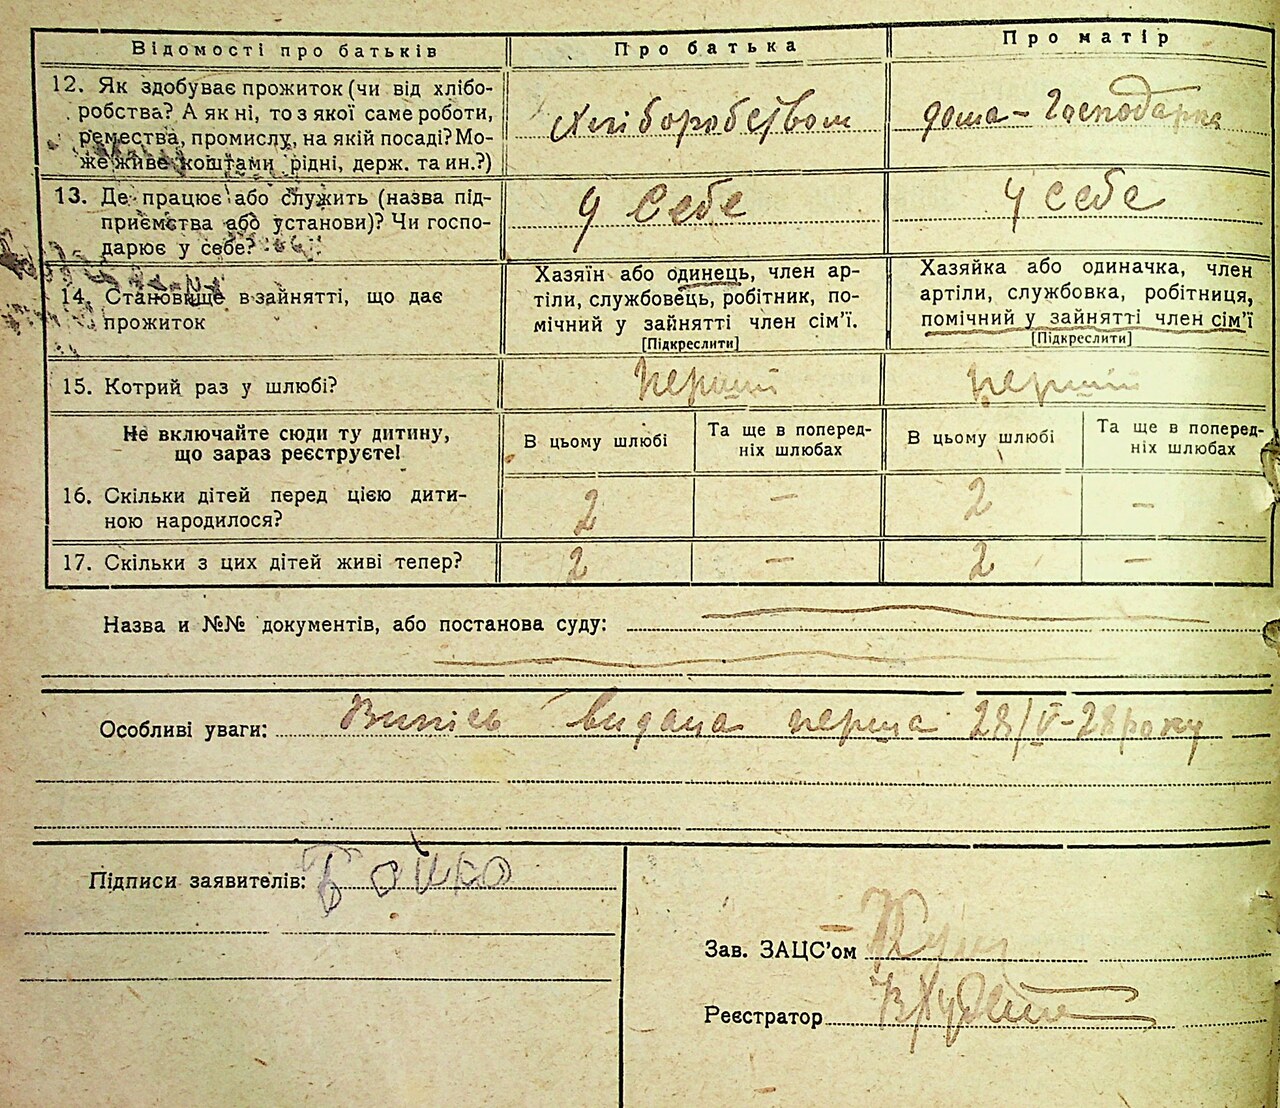 Відомості про батьків
Про батька
Про матір
12. Як здобуває прожиток (чи від хлібо-
робства? А як ні, то з якої саме роботи,
ремества, промислу, на якій посаді? Мо-
же живе коштами рідні, держ. та ин.?)
Хліборобством
дома - Господарка
13. Де працює або служить (назва під-
приємства або установи)? Чи госпо-
дарює у себе?
У себе
у себе
14. Становище в зайнятті, що дає
прожиток
Хазяїн або одинець, член ар-
тіли, службовець, робітник, по-
мічний у зайнятті член сім'ї.
[Підкреслити]
Хазяйка або одиначка, член
артіли, службовка, робітниця,
помічний у зайнятті член сім'ї
[Підкреслити]
15. Котрий раз у шлюбі?
перший
перший
Не включайте сюди ту дитину,
що зараз реєструєте!
В цьому шлюбі
Та ще в поперед-
ніх шлюбах
В цьому шлюбі
Та ще в поперед-
ніх шлюбах
16. Скільки дітей перед цією дити-
ною народилося?
2
—
2
—
17. Скільки з цих дітей живі тепер?
2
—
2
—
Назва и №№ документів, або постанова суду:
Особливі уваги: Випись видана перша 28/V-28 року
Підписи заявителів: Бойко
Зав. ЗАЦС'ом
Реєстратор